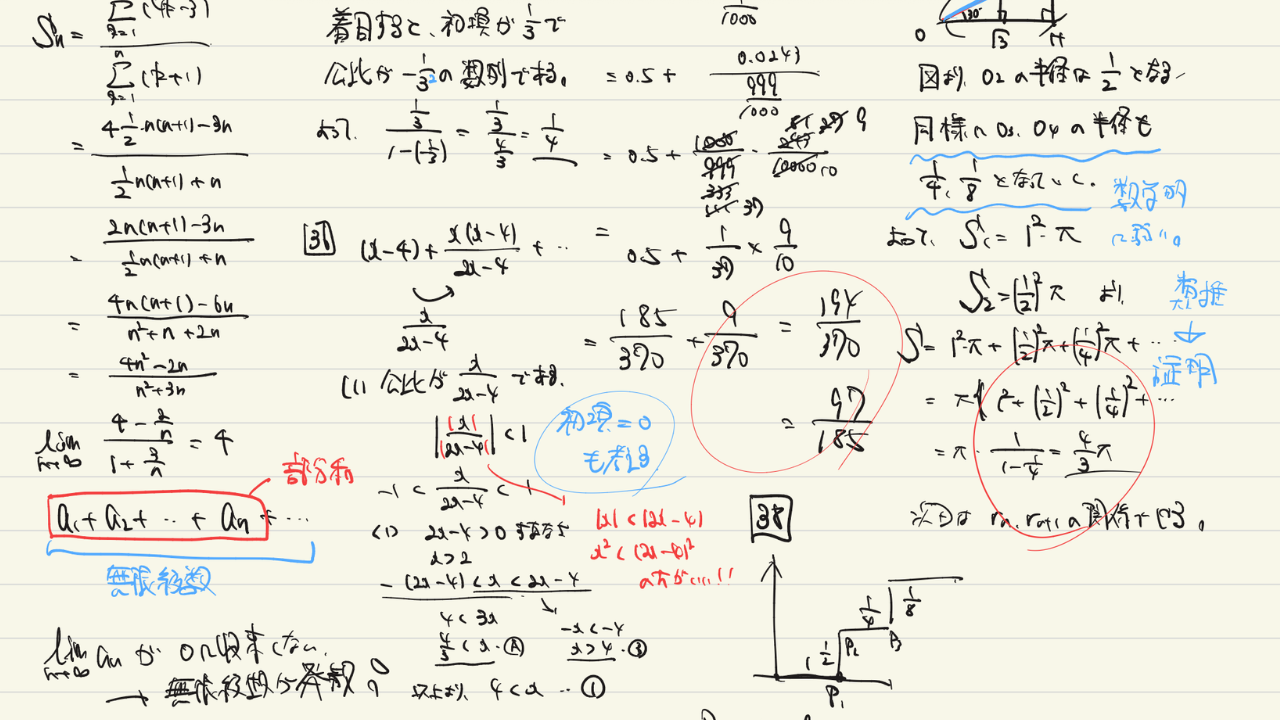 Sn = Σ(4k-3)
k=1
n
Σ(k+1)
k=1
= 4·1/2·n(n+1)-3n
1/2 n(n+1)+n
= 2n(n+1)-3n
1/2 n(n+1)+n
= 4n(n+1)-6n
n²+n+2n
= 4n²-2n
n²+3n
lim n→∞ (4-2/n)/(1+3/n) = 4
部分和
a1+a2+‥+an+…
無限級数
lim n→∞ an が 0に収束しない
→ 無限級数は発散。
着目すると、初項が 1/3 で
公比が -1/3² の数列である。
よって、 (1/3)/(1-(1/3)) = (1/3)/(4/3) = 1/4
36
(x-4)+ x(x-4)/(2x-4) + …
x/(2x-4)
(1) 公比が x/(2x-4) である。
|x/(2x-4)| < 1
-1 < x/(2x-4) < 1
(i) 2x-4>0 すなわち
x>2
-(2x-4) < x < 2x-4
4 < 3x
4/3 < x ‥Ⓐ
-x < -4
x > 4 ‥Ⓑ
以上より、4<x ‥①
初項=0
も考える
|x| < |2x-4|
x² < (2x-4)²
の方がいい!!
1/1000
= 0.5 + 0.0243/(999/1000)
= 0.5 + 1000/999 · 243/10000
= 0.5 + 1/37 × 9/10
= 185/370 + 9/370 = 194/370
= 97/185
38
1 1/2 1/4 1/8
P1 P2 P3
0 30° √3 H
図より、O2の半径は 1/2 となる
同様に O3, O4 の半径も
1/4, 1/8 となっていく。
数学的
に弱い。
よって、S1 = 1²·π
S2 = (1/2)²π より
類推
↓
証明
S = 1²·π + (1/2)²π + (1/4)²π + …
= π{1² + (1/2)² + (1/4)² + …
= π · 1/(1-1/4) = 4/3 π
次回は rn, rn+1 の関係でやる。